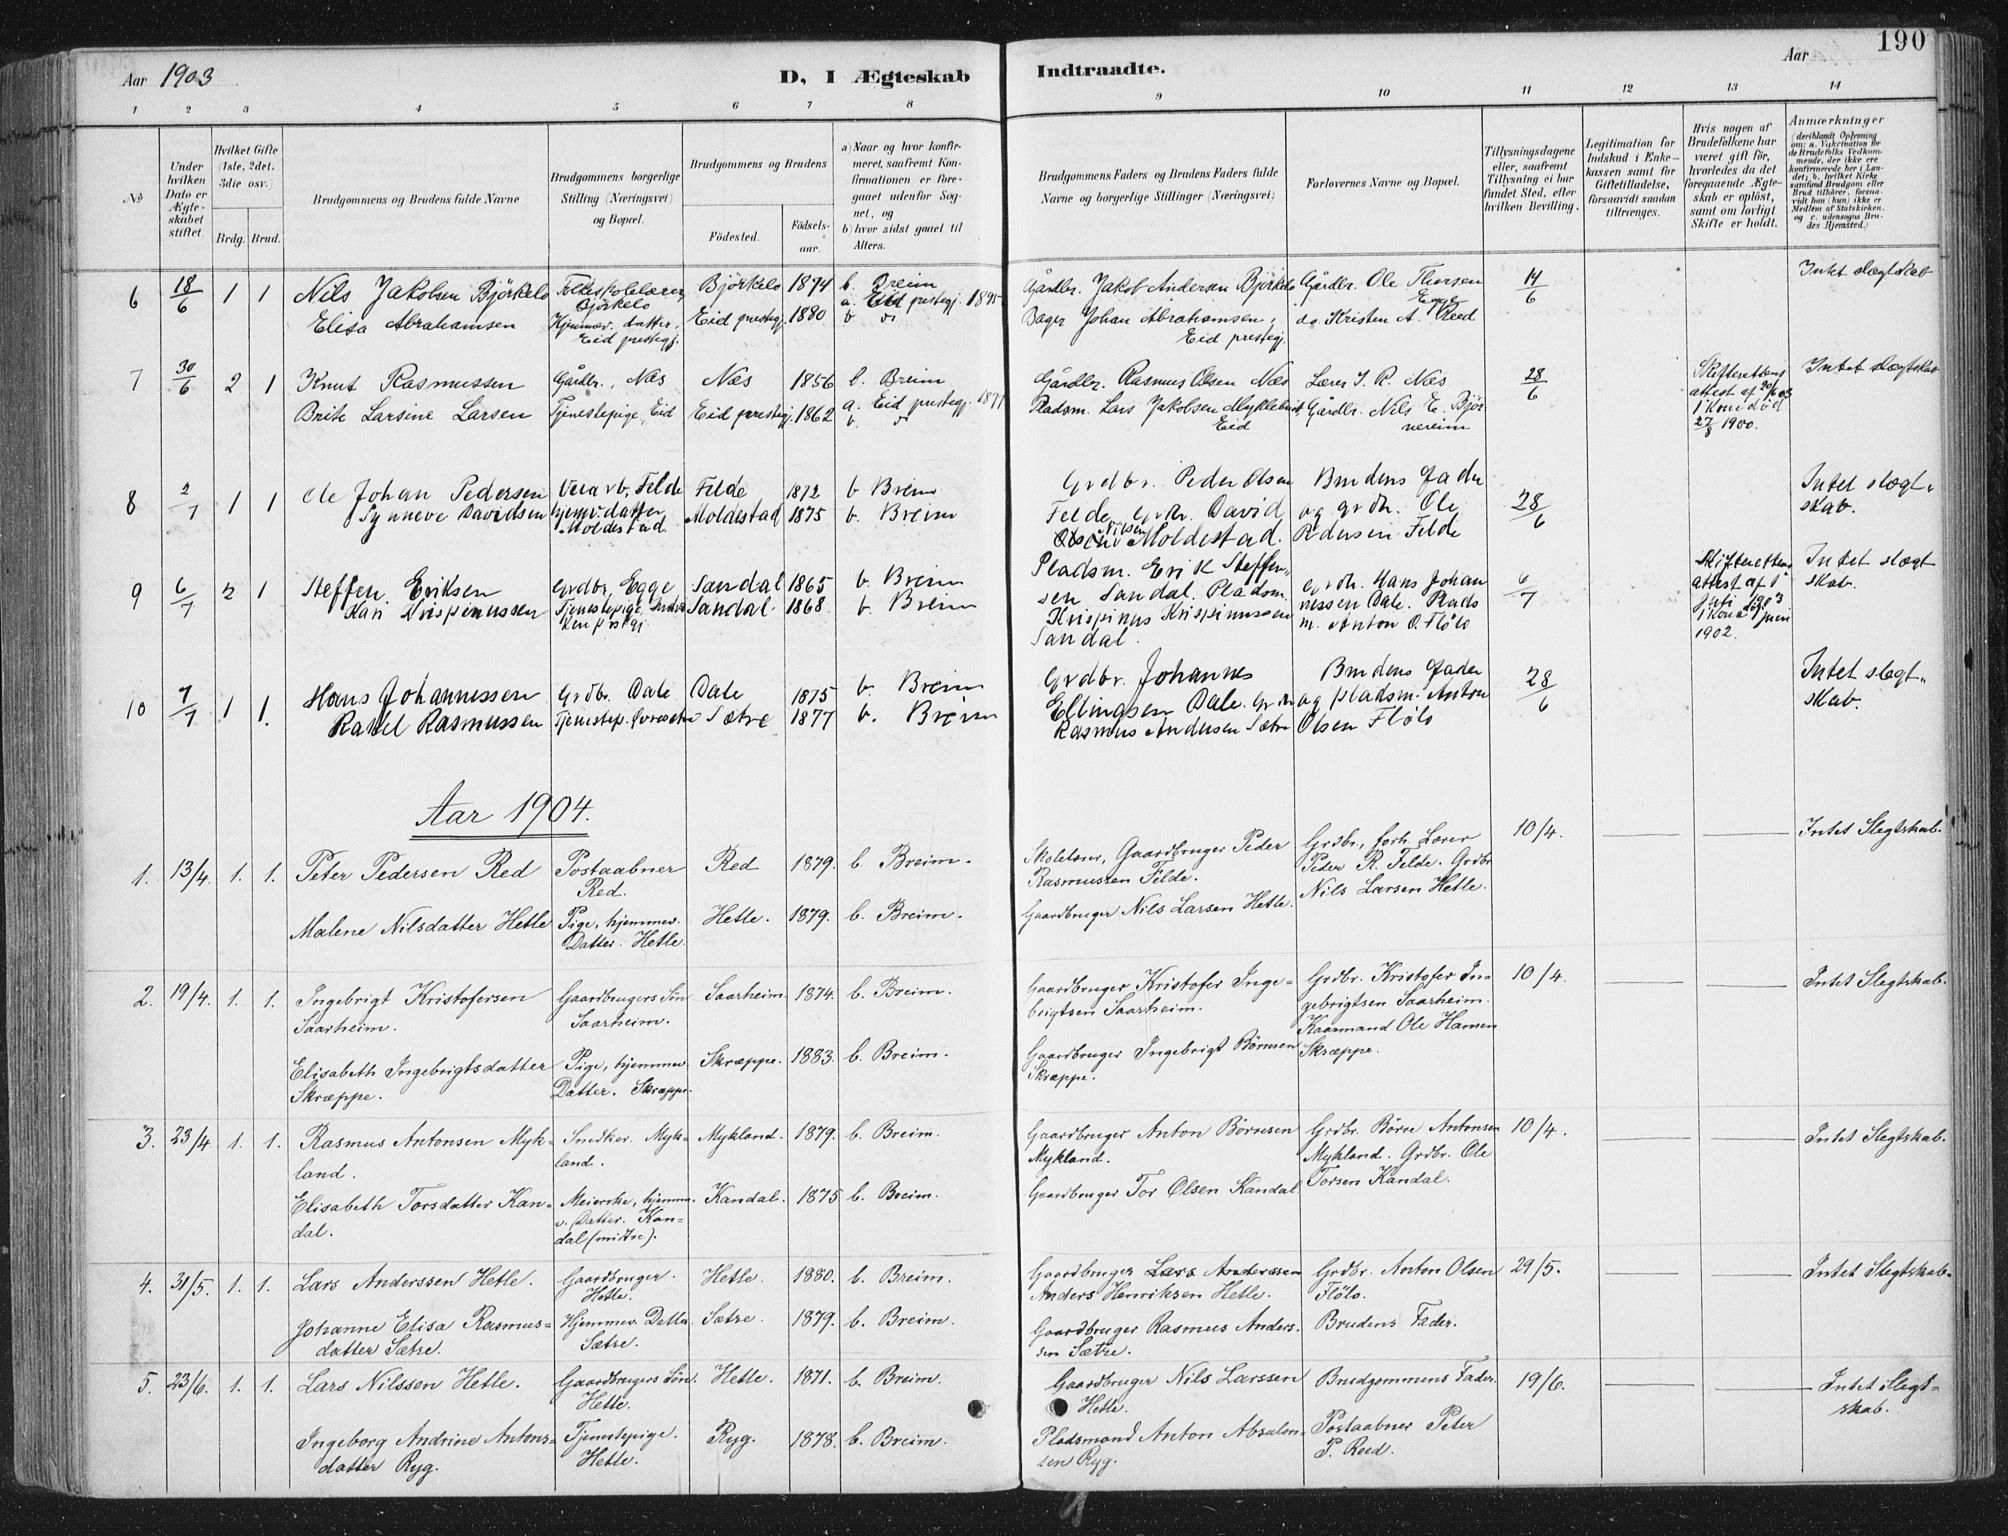 190
Aar 1903
D, I Ægteskab
Indtraadte.
Aar
1 2 3 4 5 6 7 8 9 10 11 12 13 14
№
Under hvilken Dato er Ægteskabet stiftet.
Hvilket Gifte (1ste, 2det, 3die osv.)
Brdg. Brud.
Brudgommens og Brudens fulde Navne
Brudgommens borgerlige Stilling (Næringsvei) og Bopæl.
Brudgommens og Brudens
Fødested. Fødselsaar.
a) Naar og hvor konfirmeret, saafremt Konfirmationen er foregaaet udenfor Sognet, og
b) hvor sidst gaaet til Alters.
Brudgommens Faders og Brudens Faders fulde Navne og borgerlige Stillinger (Næringsvei)
Forlovernes Navne og Bopæl.
Tillysningsdagene eller, saafremt Tillysning ei har fundet Sted, efter hvilken Bevilling.
Legitimation for Indskud i Enkekassen samt for Giftetilladelse, forsaavidt saadan tiltrænges.
Hvis nogen af Brudefolkene har været gift før, hvorledes da det foregaaende Ægteskab er opløst, samt om lovligt Skifte er holdt.
Anmærkninger (deriblandt Oplysning om: a. Vakcination for de Brudefolks Vedkommende, der ikke ere konfirmerede her i Landet; b. hvilket Kirkesamfund Brudgom eller Brud tilhører, forsaavidt han (hun) ikke er Medlem af Statskirken, og c. udensogns Brudes Hjemsted.)
6 18/6 1 1 Nils Jakobsen Björkelo Folkeskolelærer, Björkelo Björkelo 1874 b. Breim Gårdbr. Jakob Andersen Björkelo Gårdbr. Ole Thorsen Egge 14/6 Intet slægtskab
Elisa Abrahamsen Hjemmev. datter, Eid prestegj. Eid prestegj. 1880 a. Eid prestegj. 1895 b. Bager Johan Abrahamsen, Eid prestegj. do. Kristen A. Reed
7 30/6 2 1 Knut Rasmussen Gårdbr., Næs Næs 1856 b. Breim Gårdbr. Rasmus Olsen Næs Lærer J. R. Næs 28/6 Skifterettens attest af 20/6 03 1 Kone død 27/8 1900. Intet slægtskab
Brite Larsine Larsen Tjenestepige, Eid Eid prestegj. 1862 a. Eid prestegj. 1877 b. Pladsm. Lars Jakobsen Myklebust Eid Gårdbr. Nils E. Björnereim
8 2/7 1 1 Ole Johan Pedersen Felde Felde 1872 b Breim Grdbr. Peder Olsen Felde Brudens fader 28/6 Intet slægtskab.
Synneve Davidsen hjemv. datter, Moldestad Moldestad 1875 b. Breim Grdbr. David Nilsen Moldestad. og grdbr. Ole Pedersen Felde
9 6/7 2 1 Steffen Eriksen Grdbr, Egge Sandal 1865 b. Breim Pladsm. Erik Steffensen Sandal. grdbr. Hans Johannessen Dale. 6/7 Skifterettens attest af 1 Juli 1903 1 Kone død juni 1902. Intet slægtskab.
Kari Krispinussen Tjenestepige, Sandal 1868 b. Breim Pladsm. Krispinus Krispinussen Sandal. Pladsm. Anton O. Flölo
10 7/7 1 1. Hans Johannessen Grdbr. Dale Dale 1875 b. Breim Grdbr. Johannes Ellingsen Dale. Brudens fader 28/6 Intet slægtskab.
Rakel Rasmussen Tjenestep. Sætre 1877 b. Breim Grdbr Rasmus Andersen Sætre og pladsm. Anton Olsen Flölo
Aar 1904.
1. 13/4. 1. 1. Peter Pedersen Red Postaabner Red. Red 1879. b. Breim. Skolelærer, Gaardbruger Peder Rasmussen Felde. Grdbr., forh. Lærer Peder R. Felde. Grdbr. Nils Larsen Hetle. 10/4. Intet Slegtskab.
Malene Nilsdatter Hetle Pige, hjemmev. Datter. Hetle. Hetle. 1879. b. Breim. Gaardbruger Nils Larsen Hetle.
2. 19/4. 1. 1. Ingebrigt Kristofersen Saarheim. Gaardbrugers Søn Saarheim. Saarheim. 1874. b. Breim. Gaardbruger Kristofer Ingebrigtsen Saarheim. Grdbr. Kristofer Ingebrigtsen Saarheim. 10/4. Intet Slegtskab.
Elisabeth Ingebrigtsdatter Skræppe. Pige, hjemmev. Datter. Skræppe. Skræppe. 1883. b. Breim. Gaardbruger Ingebrigt Börnesen Skræppe. Kaarmand Ole Hansen Skræppe.
3. 23/4. 1. 1. Rasmus Antonsen Mykland. Snedker. Mykland. Mykland. 1879. b. Breim. Gaardbruger Anton Börresen Mykland. Grdbr. Börre Antonsen Mykland. Grdbr. Ole Torsen Kandal. 10/4. Intet Slegtskab.
Elisabeth Torsdatter Kandal. Meierske, hjemmev. Datter. Kandal (midtre). Kandal. 1875 b. Breim. Gaardbruger Tor Olsen Kandal
4. 31/5. 1. 1. Lars Anderssen Hetle. Gaardbruger. Hetle. Hetle. 1880. b. Breim. Gaardbruger Lars Anderssen Anders Henriksen Hetle. Grdbr. Anton Olsen Flölo. 29/5. Intet Slegtskab.
Johanne Elisa Rasmusdatter Sætre. Hjemmev. Datter Sætre. Sætre. 1879. b. Breim. Gaardbruger Rasmus Anderssen Sætre. Brudens Fader.
5. 23/6. 1. 1. Lars Nilssen Hetle. Gaardbrugers Søn. Hetle. Hetle. 1871. b. Breim. Gaardbruger Nils Larssen Hetle. Brudgommens Fader. 19/6. Intet Slegtskab.
Ingeborg Andrine Antonsdatter Ryg. Tjenestepige. Hetle. Ryg. 1878. b. Breim. Pladsmand Anton Absalonsen Ryg. Postaabner Peter P. Reed.